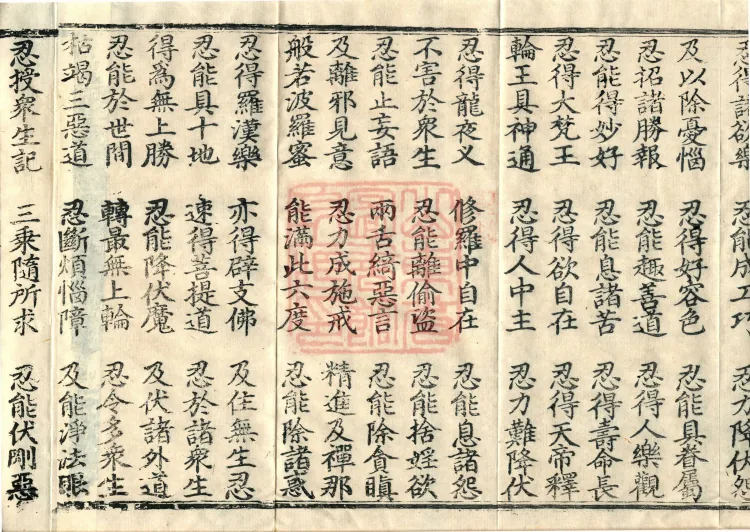 忍得諸欲樂 忍能成工巧 忍力降伏怨
及以除憂惱 忍得好容色 忍能具眷屬
忍招諸勝報 忍能趣善道 忍得人樂觀
忍能得妙好 忍能息諸苦 忍得壽命長
忍得大梵王 忍得欲自在 忍得天帝釋
輪王具神通 忍得人中主 忍力難降伏
忍得龍夜叉 修羅中自在 忍能息諸怨
不害於衆生 忍能離偷盜 忍能捨婬欲
忍能止妄語 兩舌綺惡言 忍能除貪瞋
及離邪見意 忍力成施戒 精進及禪那
般若波羅蜜 能滿此六度 忍能除諸惑
忍得羅漢樂 亦得辟支佛 及住無生忍
忍能具十地 速得菩提道 忍於諸衆生
得爲無上勝 忍能降伏魔 及伏諸外道
忍能於世間 轉最無上輪 忍令多衆生
枯竭三惡道 忍斷煩惱障 及能淨法眼
忍授衆生記 三乘隨所求 忍能伏剛惡